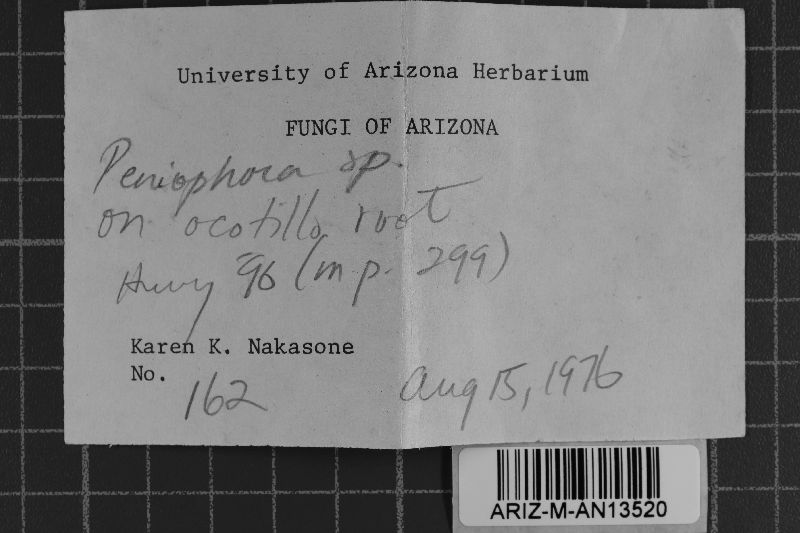 University of Arizona Herbarium
FUNGI OF ARIZONA
Peniophora sp.
on ocotillo root
Hwy 96 (m.p. 299)
Karen K. Nakasone
No. 162
Aug 15, 1976
ARIZ-M-AN13520